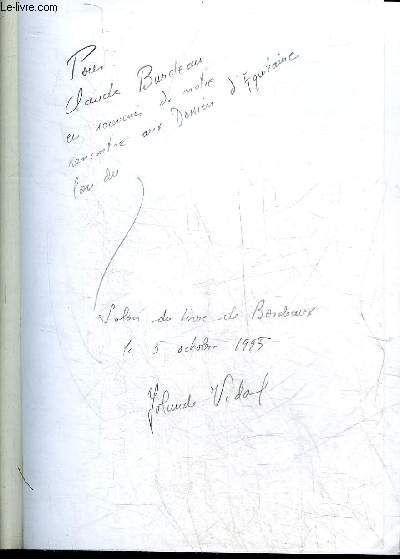 Le-livre.com
Pour
Claude Burdeau
en souvenir de notre
rencontre aux Dossiers d'Aquitaine
lors du
Salon du livre de Bordeaux
le 5 octobre 1995
Yolande Vidal